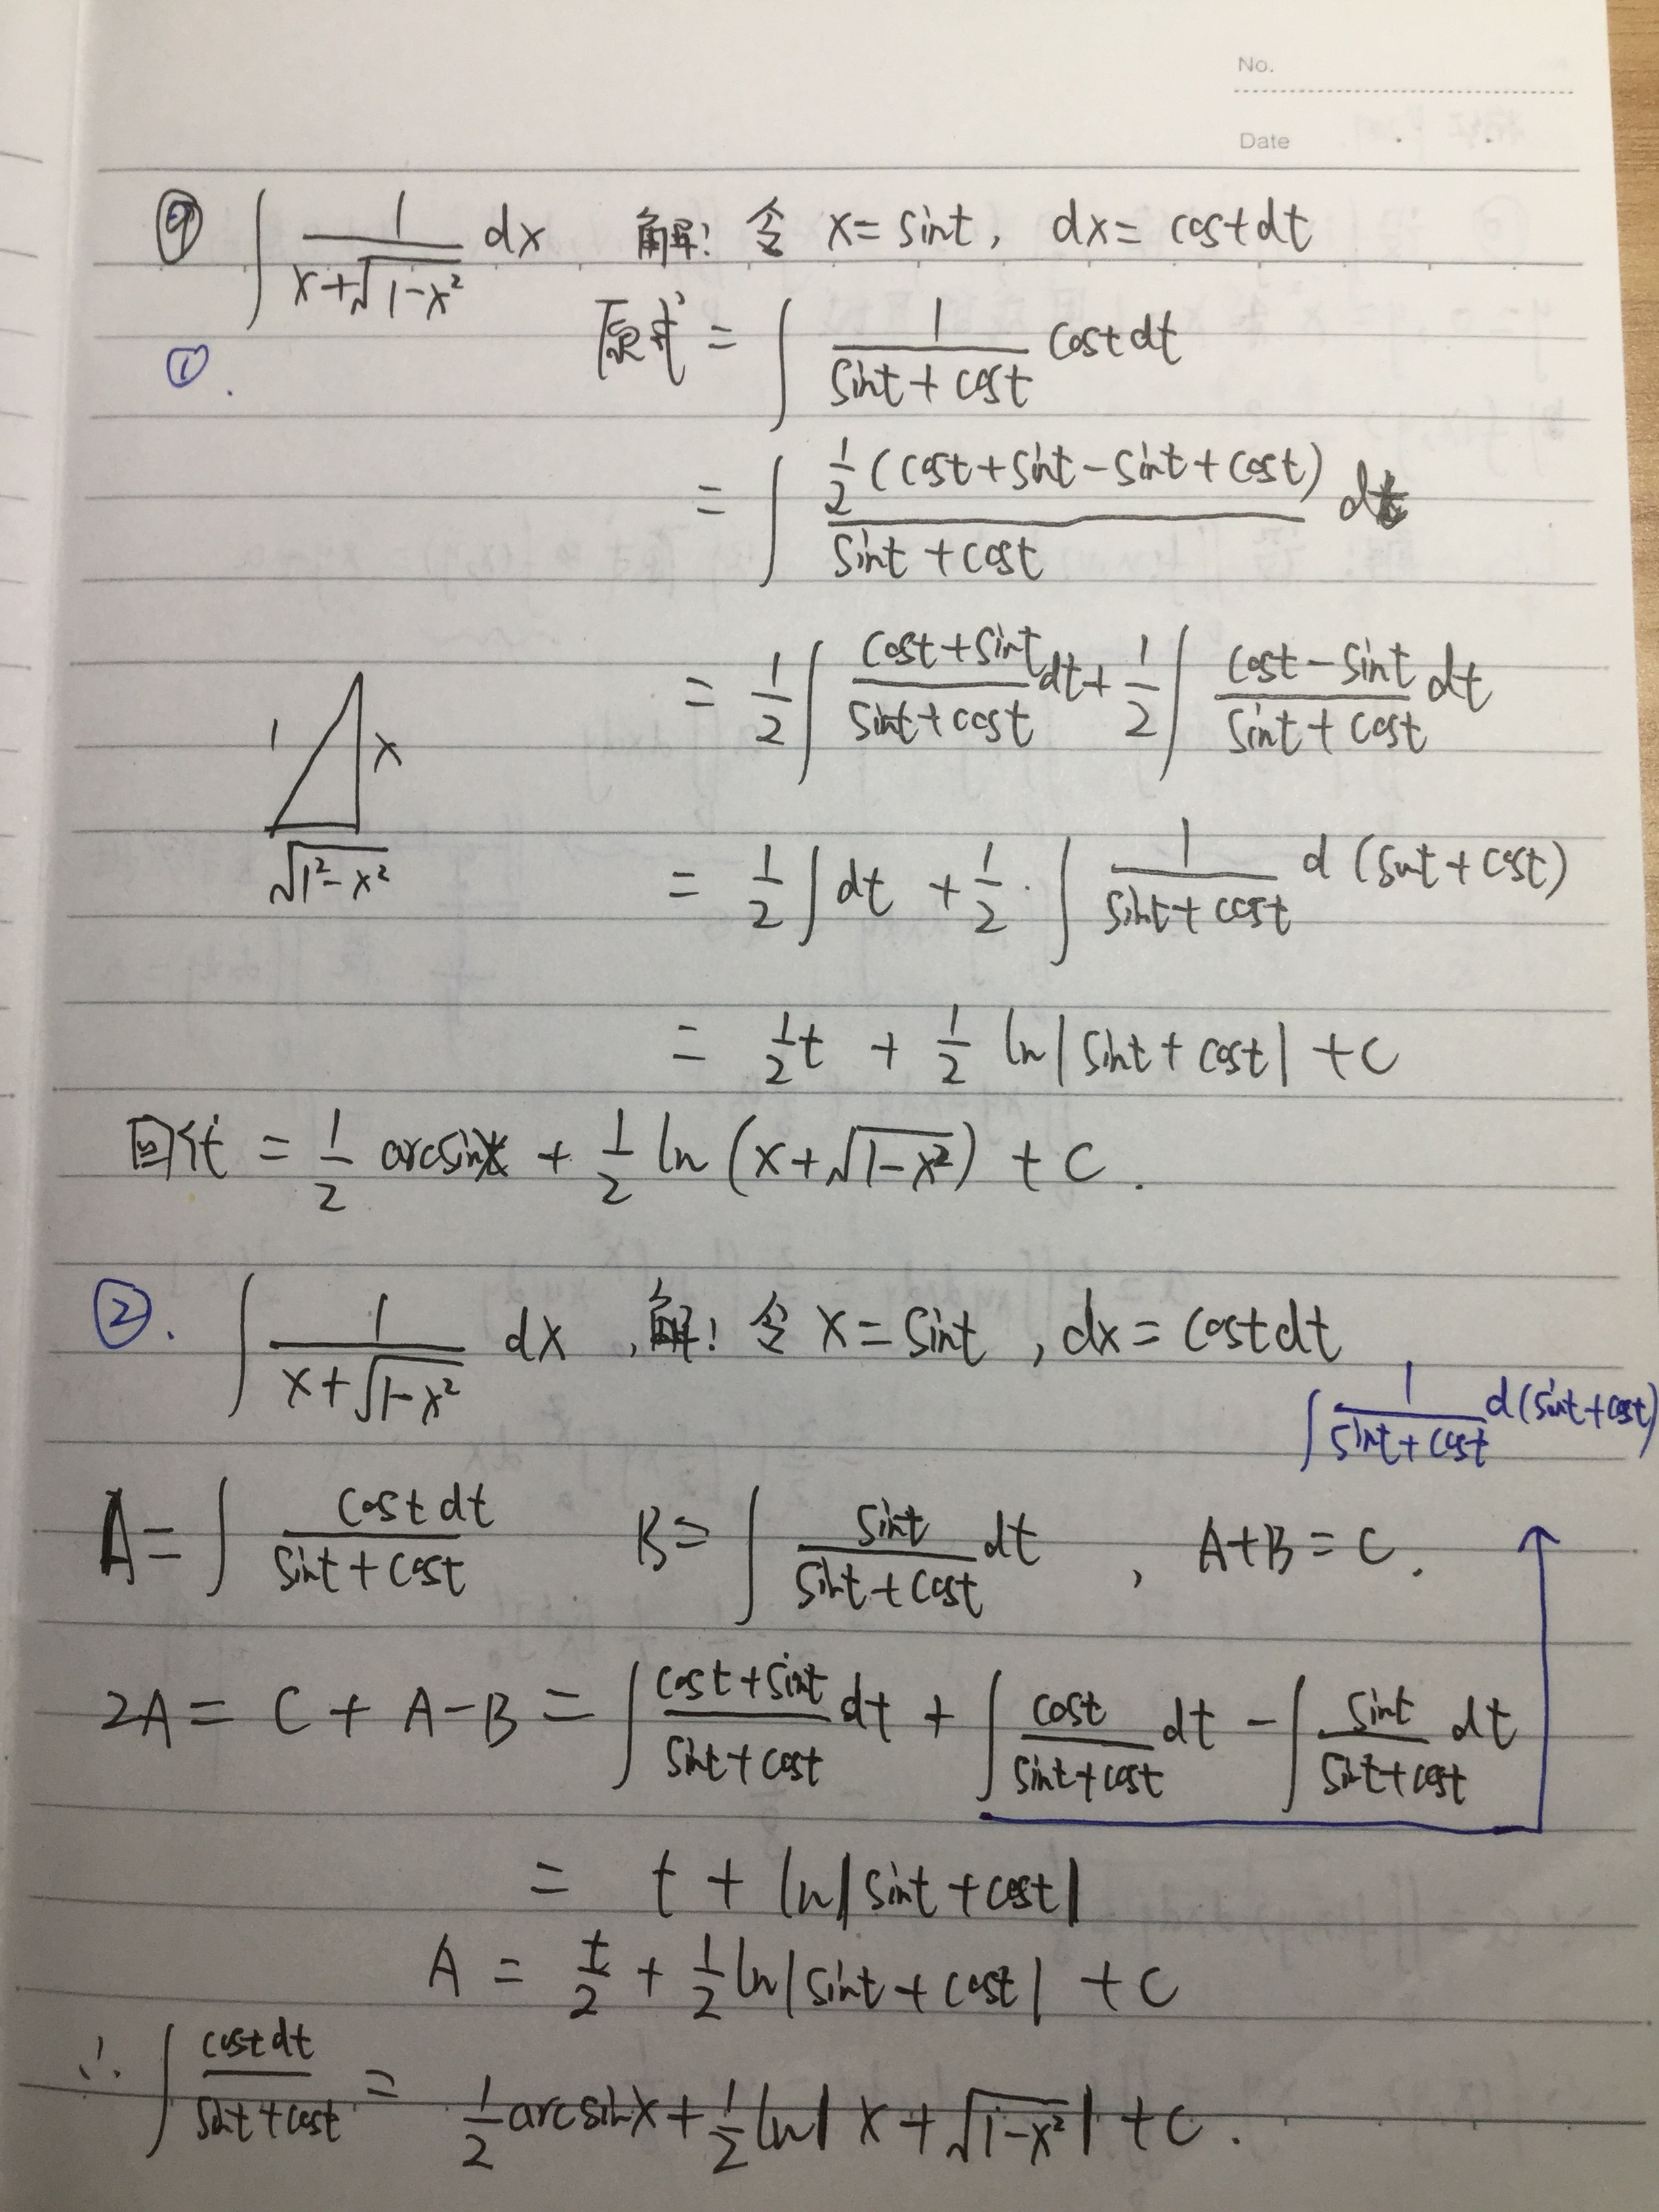 No.
Date
⑨ ∫ 1/(x+√(1-x²)) dx 解: 令 x=sint, dx=costdt
①. 原式 = ∫ 1/(sint+cost) costdt
= ∫ ½(cost+sint-sint+cost)/(sint+cost) dt
= ½∫ (cost+sint)/(sint+cost) dt + ½∫ (cost-sint)/(sint+cost) dt
1 x
√(1²-x²)
= ½∫dt + ½·∫ 1/(sint+cost) d(sint+cost)
= ½t + ½ ln|sint+cost| +C
回代 = ½ arcsinx + ½ ln(x+√(1-x²)) +C.
②. ∫ 1/(x+√(1-x²)) dx, 解: 令 x=sint, dx=costdt
∫ 1/(sint+cost) d(sint+cost)
A= ∫ costdt/(sint+cost) B= ∫ sint/(sint+cost) dt, A+B=C.
2A= C+A-B = ∫ (cost+sint)/(sint+cost) dt + ∫ cost/(sint+cost) dt - ∫ sint/(sint+cost) dt
= t+ln|sint+cost|
A = t/2 + ½ln|sint+cost| +C
∴ ∫ costdt/(sint+cost) = ½arcsinx+½ln|x+√(1-x²)|+C.